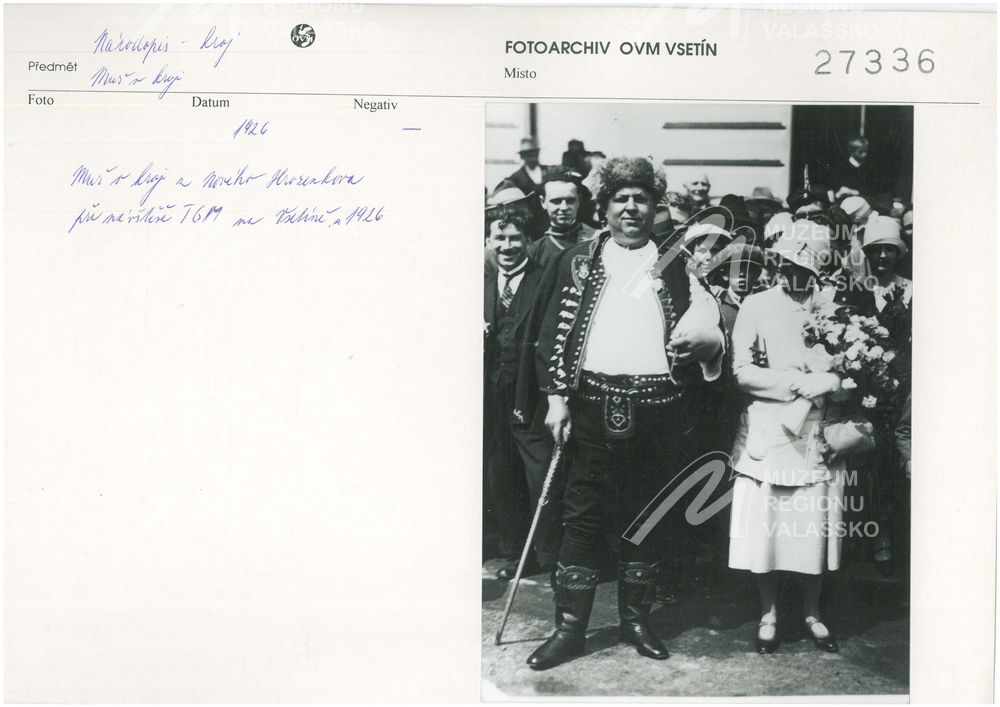 Národopis - kroj
OVM
FOTOARCHIV OVM VSETÍN
27336
Předmět
Muž v kroji
Místo
Foto Datum Negativ
1926 —
Muž v kroji z Nového Hrozenkova
při návštěvě TGM na Vsetíně, r. 1926
MUZEUM
REGIONU
VALAŠSKO
MUZEUM
REGIONU
VALAŠSKO
MUZEUM
REGIONU
VALAŠSKO
MUZEUM
REGIONU
VALAŠSKO